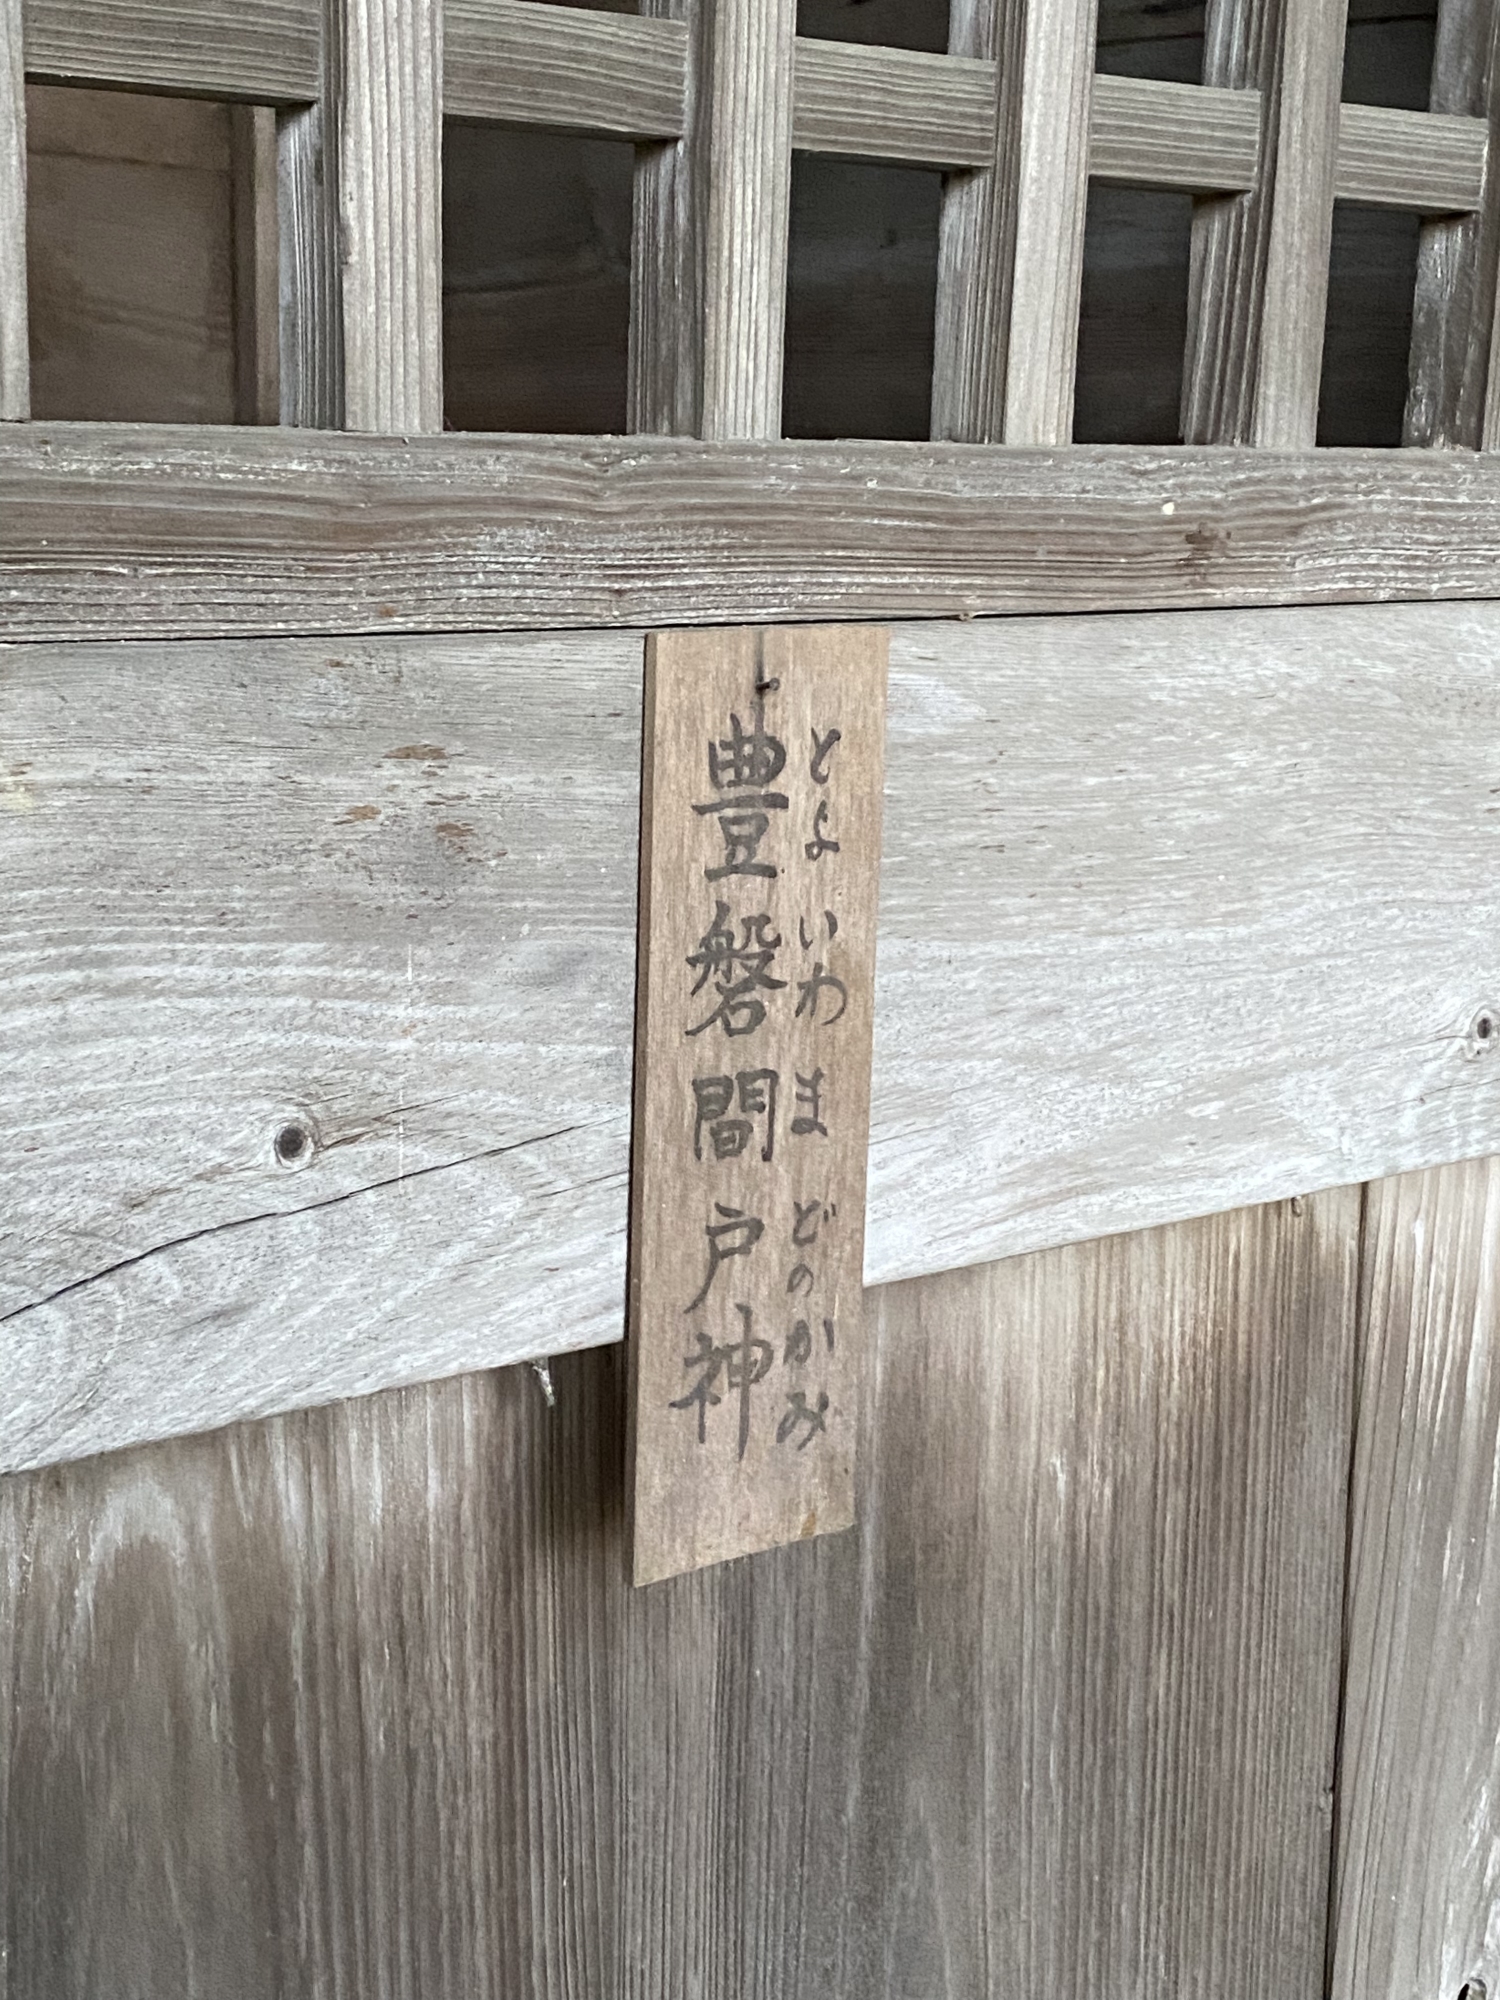 とよいわまどのかみ
豊磐間戸神